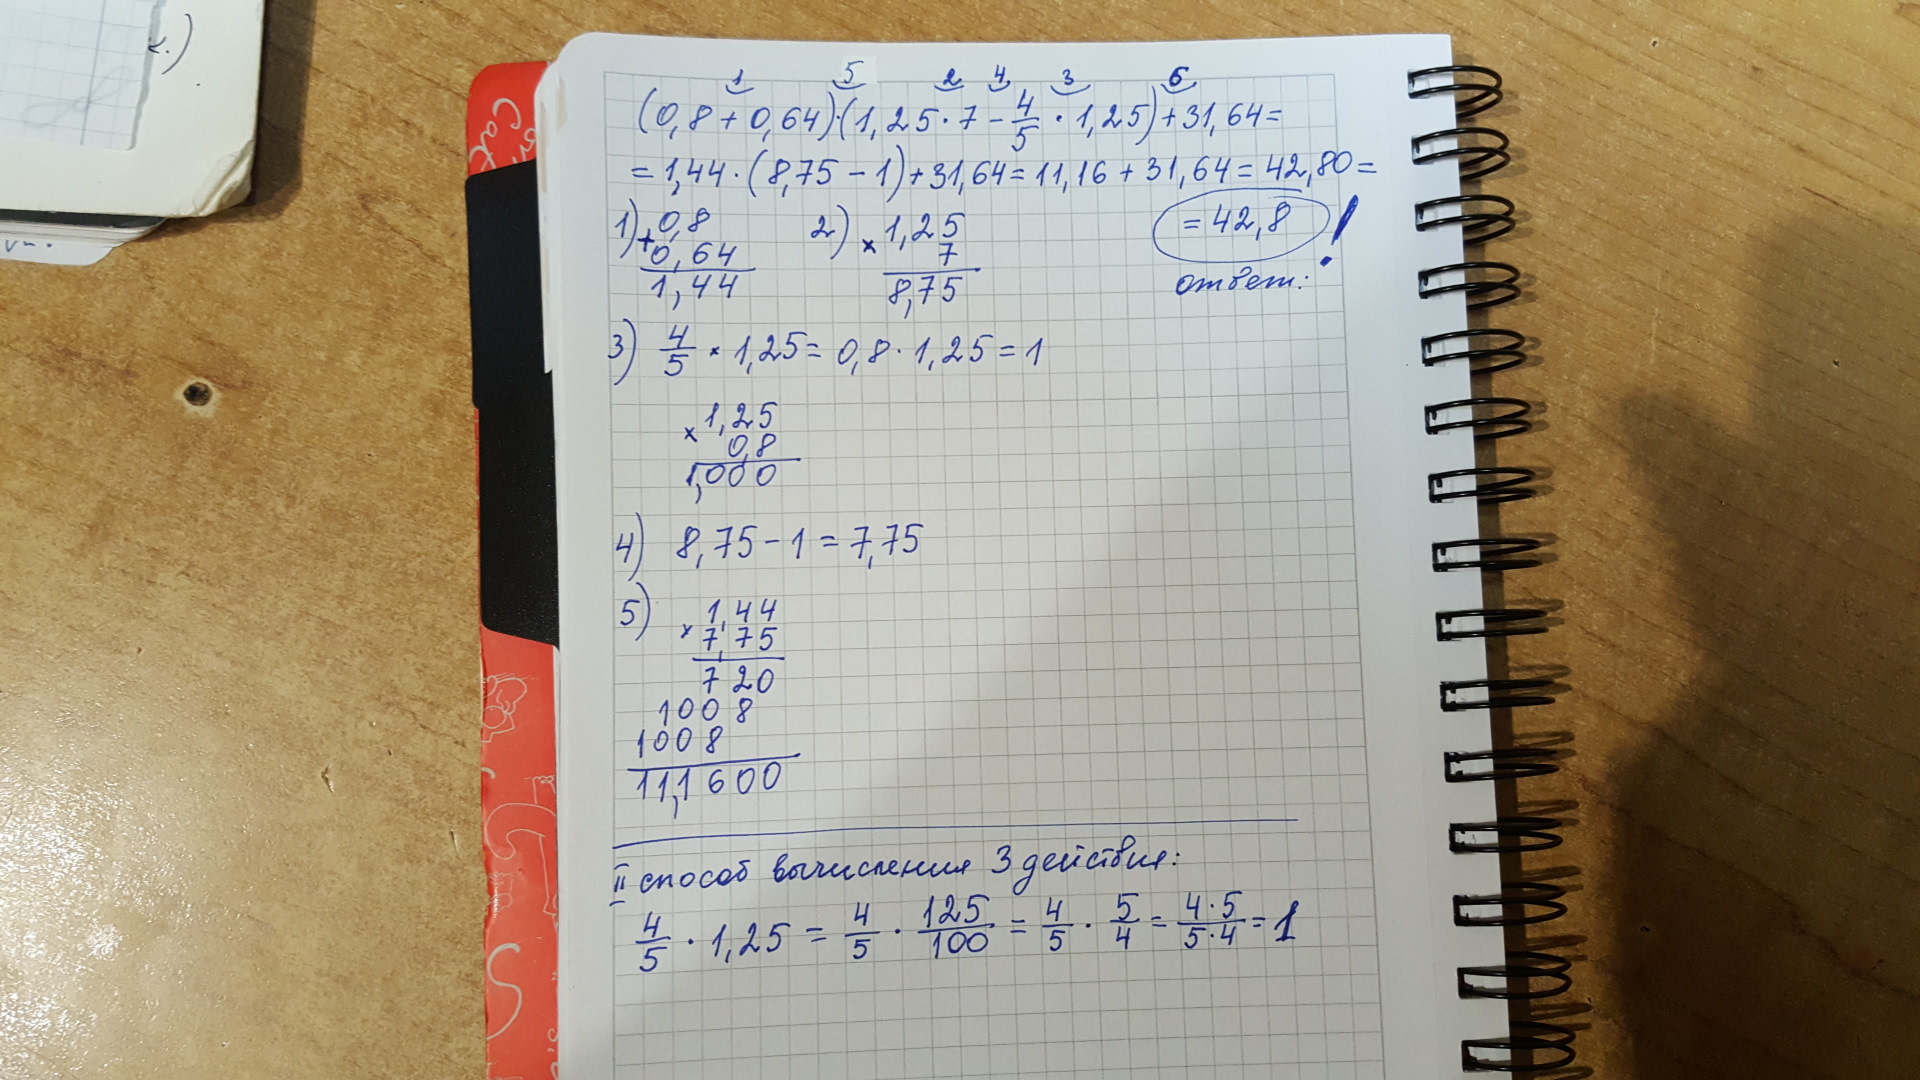 1 5 2 4 3 6
(0,8 + 0,64)·(1,25 · 7 - 4/5 · 1,25) + 31,64 =
= 1,44 · (8,75 - 1) + 31,64 = 11,16 + 31,64 = 42,80 =
= 42,8 !
ответ:
1) + 0,8
0,64
1,44
2) × 1,25
7
8,75
3) 4/5 · 1,25 = 0,8 · 1,25 = 1
× 1,25
0,8
1,000
4) 8,75 - 1 = 7,75
5) × 1,44
7,75
720
1008
1008
11,1600
II способ вычисления 3 действия:
4/5 · 1,25 = 4/5 · 125/100 = 4/5 · 5/4 = 4·5/5·4 = 1